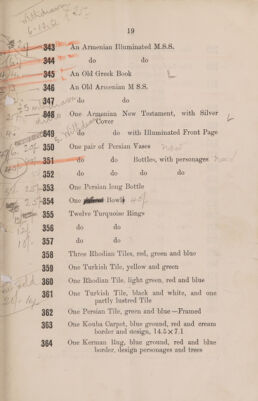 19
343 An Armenian Illuminated M.S.S.
344 do do
345 An Old Greek Book L
346 An Old Armenian M S S.
347 do do
348 One Armenian New Testament, with Silver
Cover L
349 do do with Illuminated Front Page
350 One pair of Persian Vases
351 do do Bottles, with personages
352 do do do do
353 One Persian long Bottle
354 One Bowl 40/-
355 Twelve Turquoise Rings
356 do do
357 do do
358 Three Rhodian Tiles, red, green and blue
359 One Turkish Tile, yellow and green
360 One Rhodian Tile, light green, red and blue
361 One Turkish Tile, black and white, and one
partly lustred Tile
362 One Persian Tile, green and blue—Framed
363 One Kouba Carpet, blue ground, red and cream
border and design, 14.5 × 7.1
364 One Kerman Rug, blue ground, red and blue
border, design personages and trees